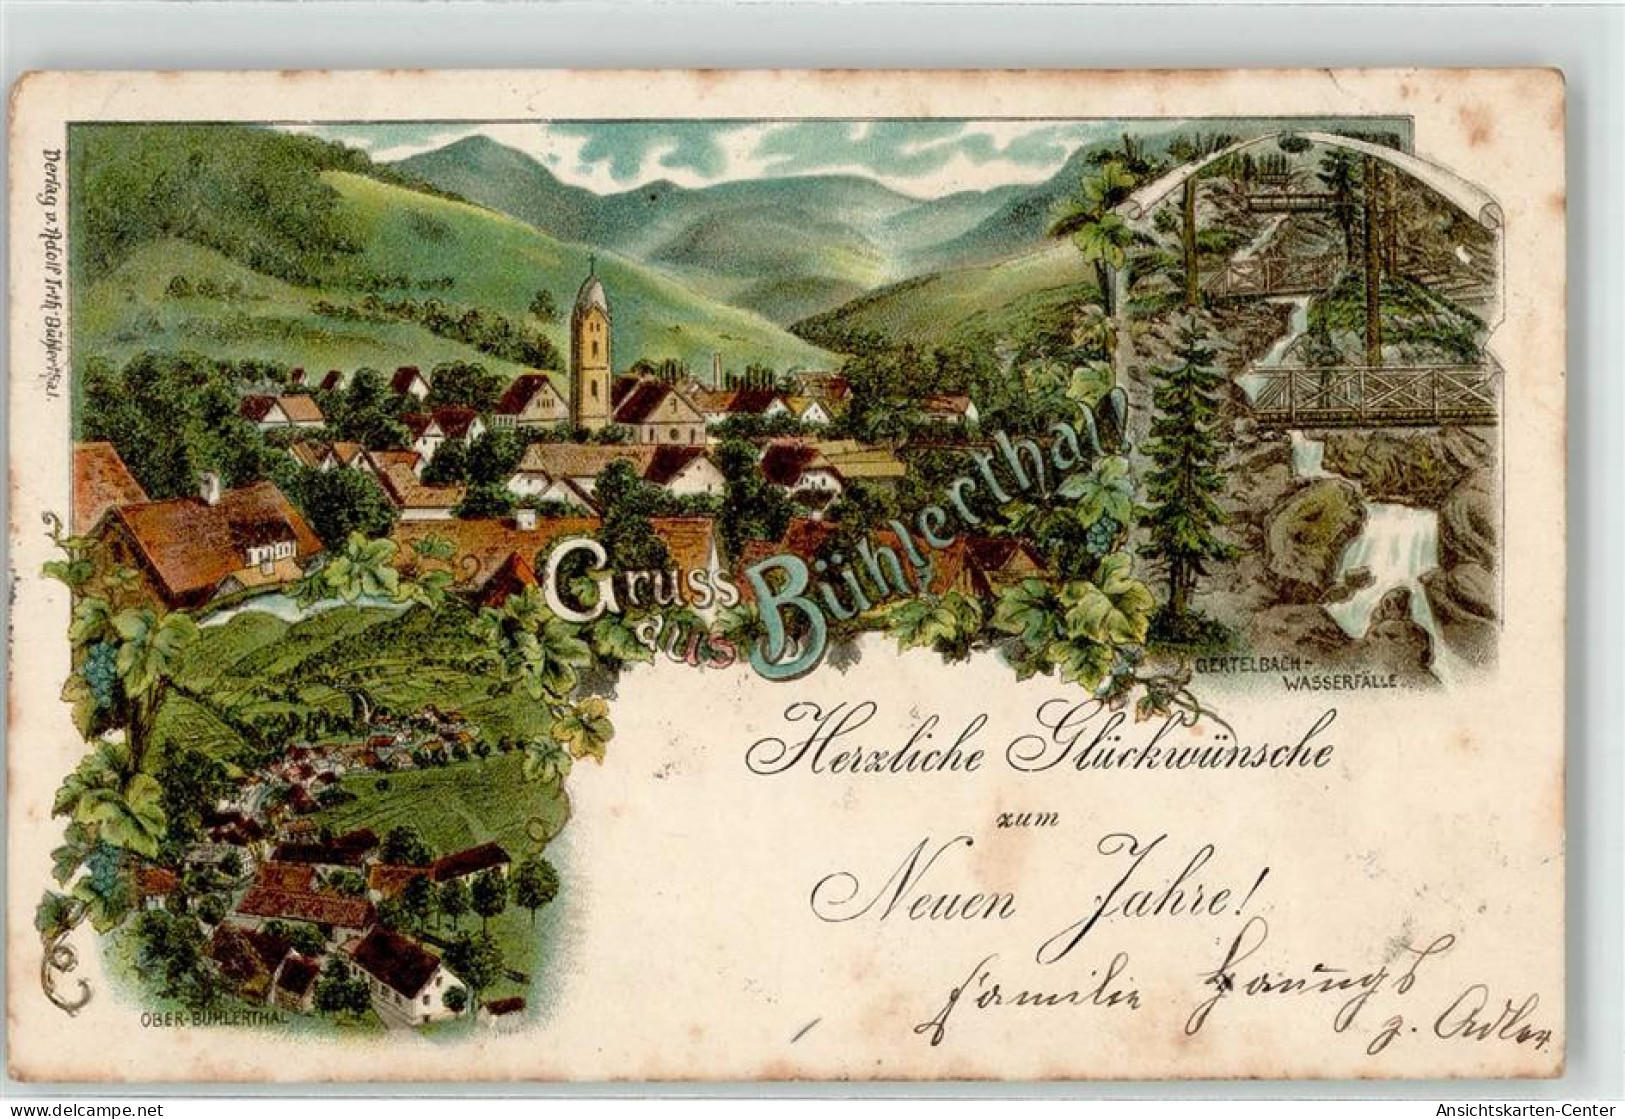 Verlag v. Adolf Irth Bühlerthal.
Gruss
aus
Bühlerthal!
GERTELBACH-
WASSERFÄLLE.
OBER-BÜHLERTHAL
Herzliche Glückwünsche
zum
Neuen Jahre!
Familie
z. Adler.
www.delcampe.net
Ansichtskarten-Center